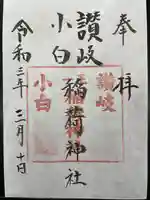 奉拝
讃岐
小白
稲荷神社
令和三年三月十日
讃岐
稲荷
小白